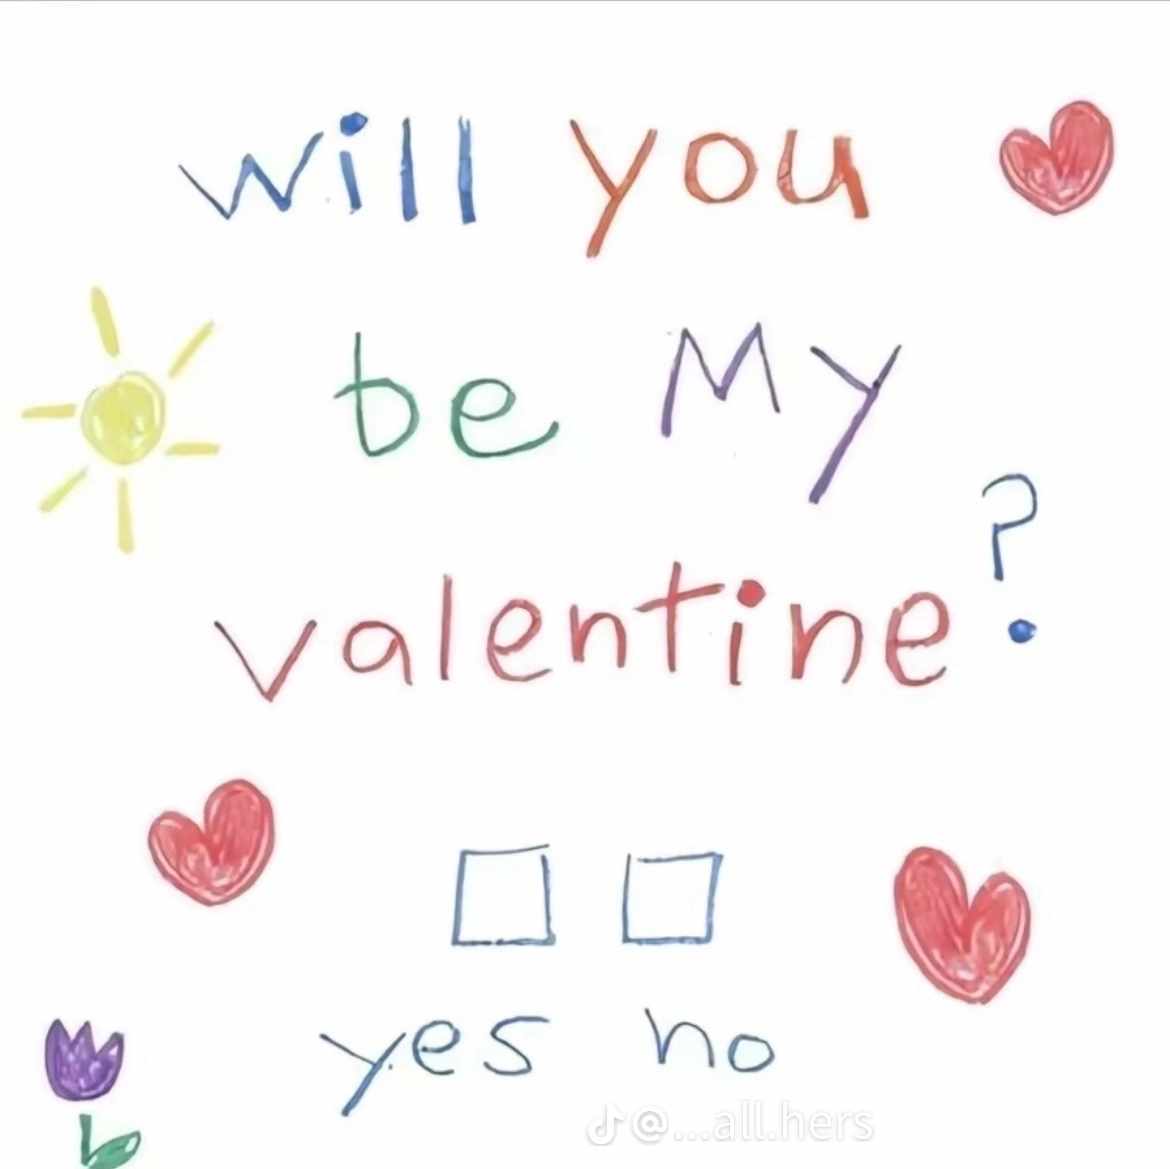 will you
be My
valentine?
yes no
@...all.hers